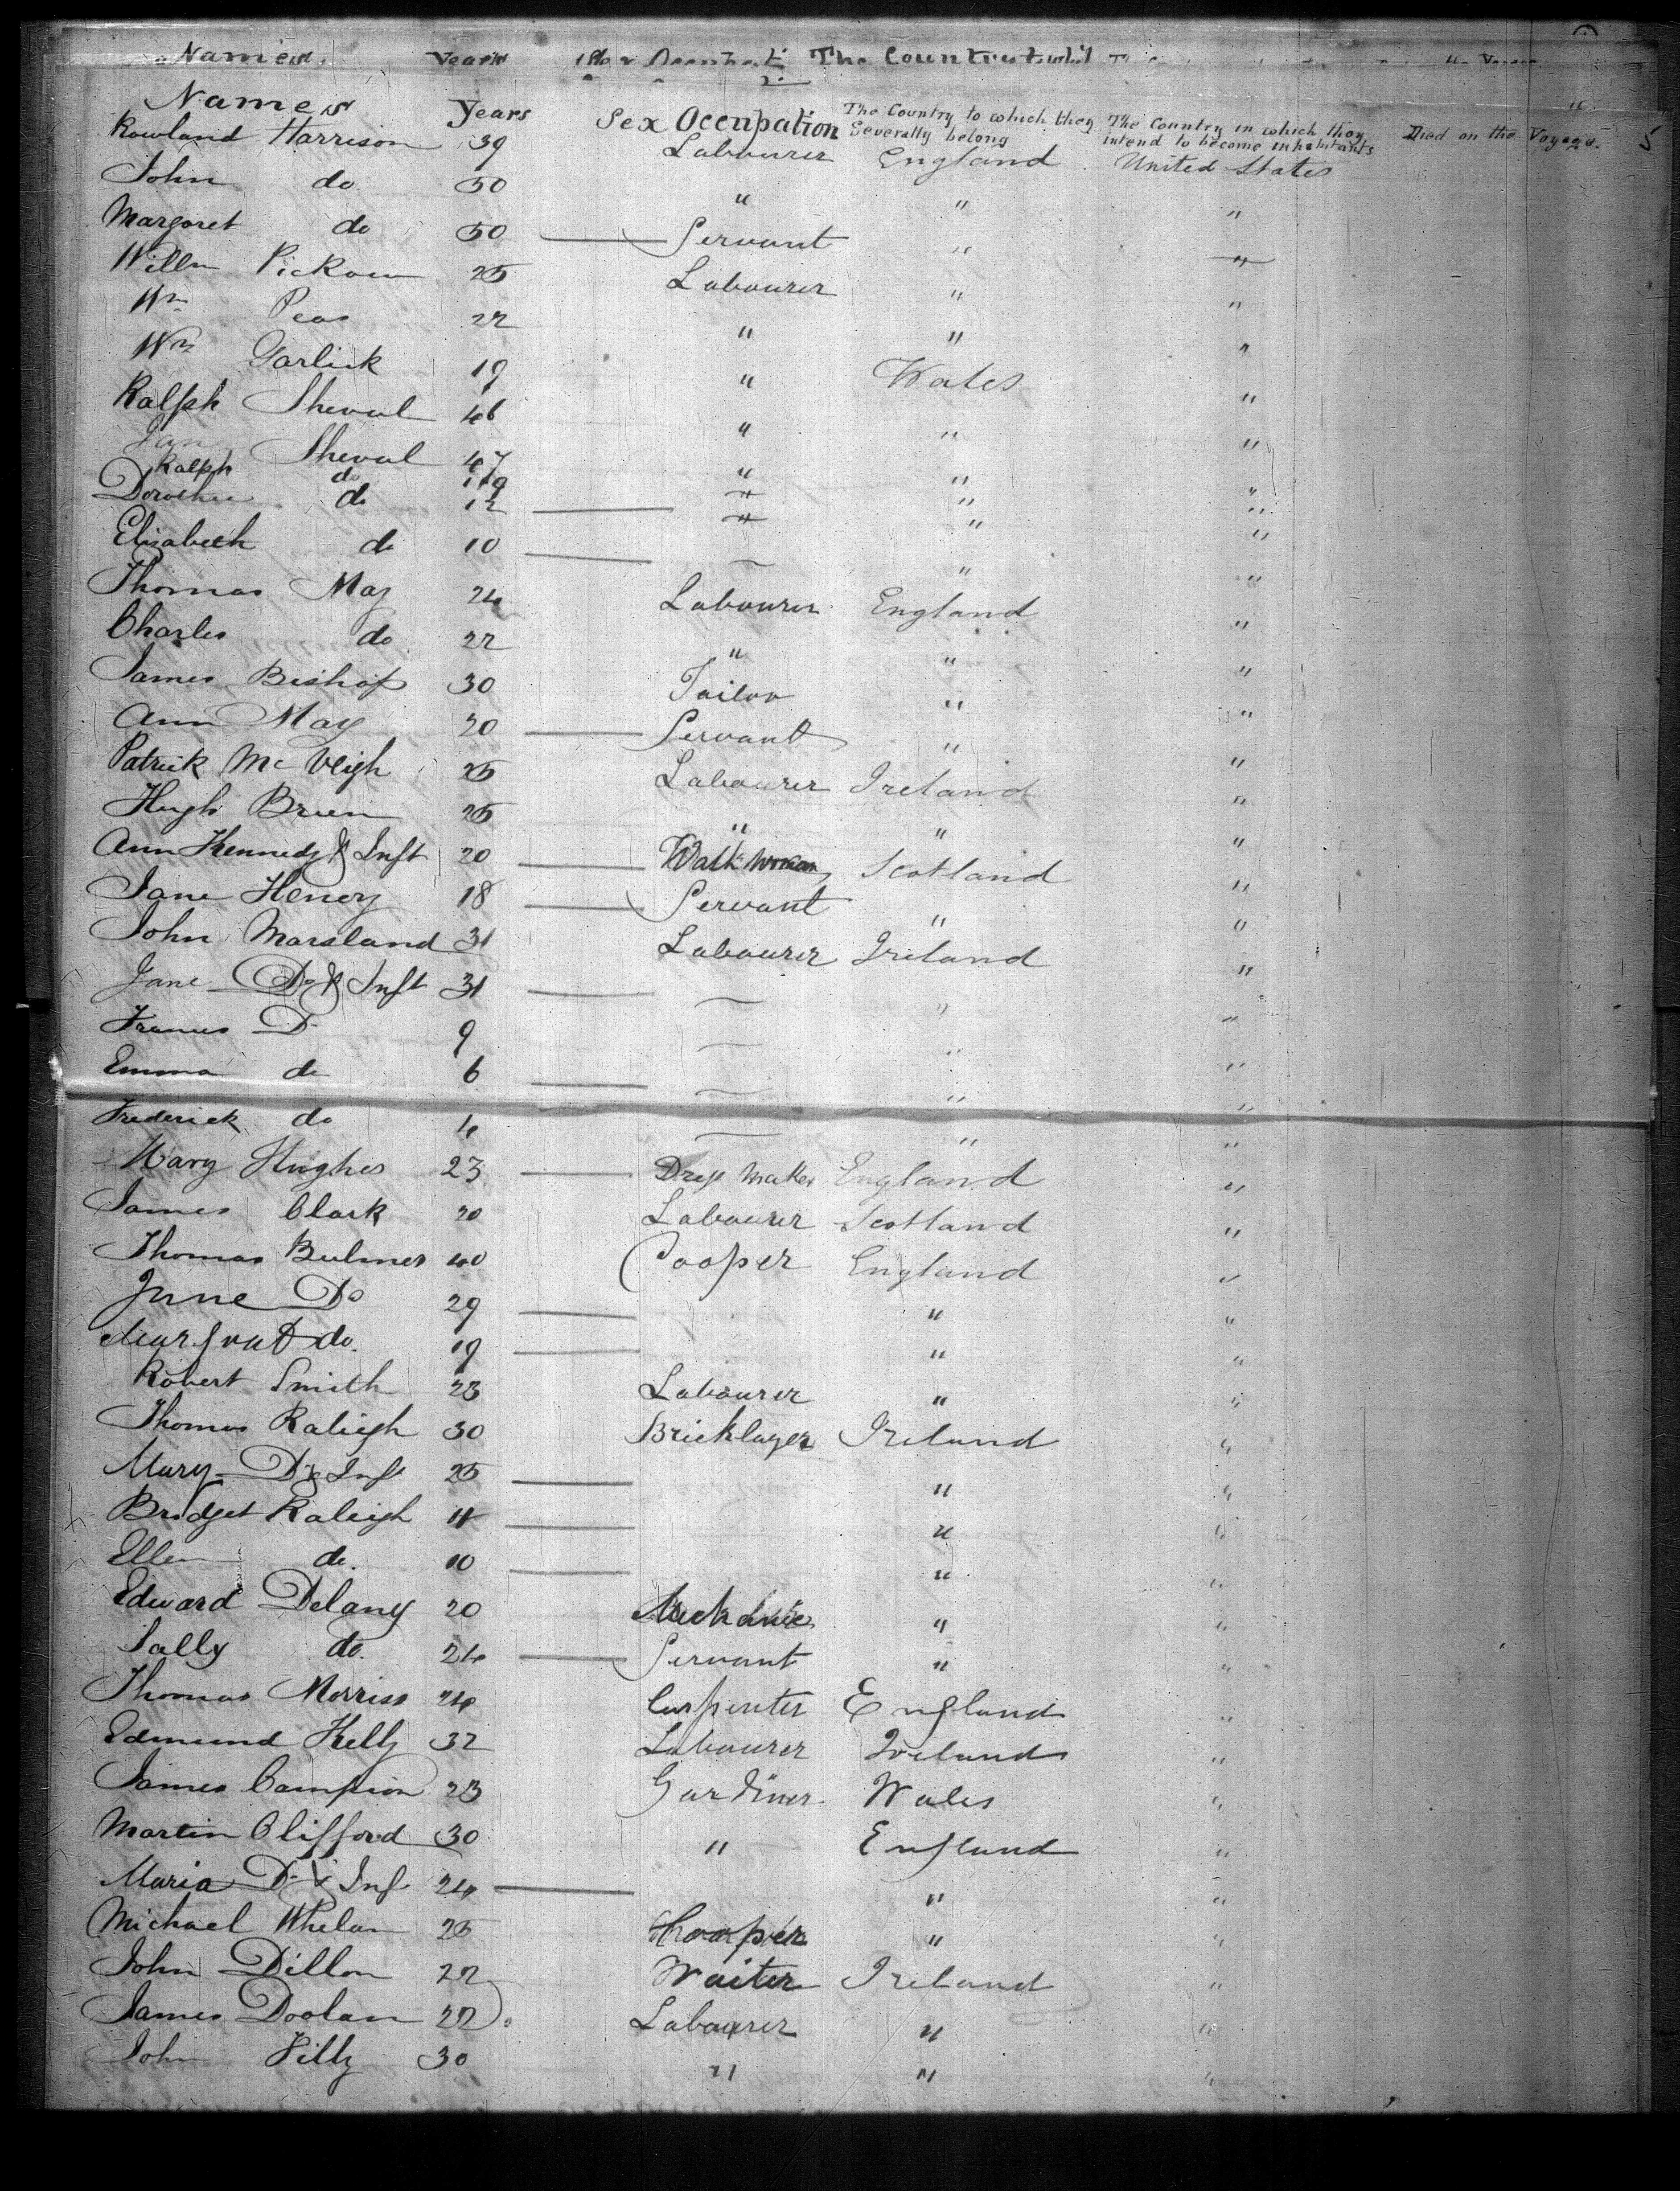 Names Years Sex Occupation The Country to which they Severally belong The Country in which they intend to become inhabitants Died on the Voyage. 5
Rowland Harrison 39 Labourer England United States
John do 50 " " "
Margaret do 50 — Servant " "
Willm 25 Labourer " "
Wm Peas 22 " " "
Wm Garlick 19 " Wales "
Ralph Sheval 46 " " "
Jan Sheval 47 " " "
Ralph do 19 " " "
Dorothea do 12 — " " "
Elisabeth do 10 — — " "
Thomas May 24 Labourer England "
Charles do 22 " " "
James Bishop 30 Tailor " "
Ann May 20 — Servant " "
Patrick McVeigh 25 Labourer Ireland "
Hugh Brien 25 " " "
Ann Kennedy & Inft 20 — Scotland "
Jane Henery 18 — Servant " "
John Marsland 31 Labourer Ireland "
Jane Do & Inft 31 — — " "
Frances D 9 — " "
Emma do 6 — — " "
Frederick do 4 — " "
Mary Hughes 23 — Dress Maker England "
James Clark 20 Labourer Scotland "
Thomas Bulmer 40 Cooper England "
Jane Do 29 — " "
Margrat do. 19 — " "
Robert Smith 23 Labourer " "
Thomas Raleigh 30 Bricklayer Ireland "
Mary Do & Inft 25 — " "
Bridget Raleigh 11 — " "
Ellen do. 10 — " "
Edward Delany 20 Mechanic " "
Sally do. 24 — Servant " "
Thomas Morriss 24 Carpenter England "
Edmund Kelly 32 Labourer Ireland "
James Campion 23 Gardiner Wales "
Martin Clifford 30 " England "
Maria D & Inf 24 — " "
Michael Whelan 25 Cooper " "
John Dillon 22 Waiter Ireland "
James Doolan 22 Labourer " "
John 30 " " "